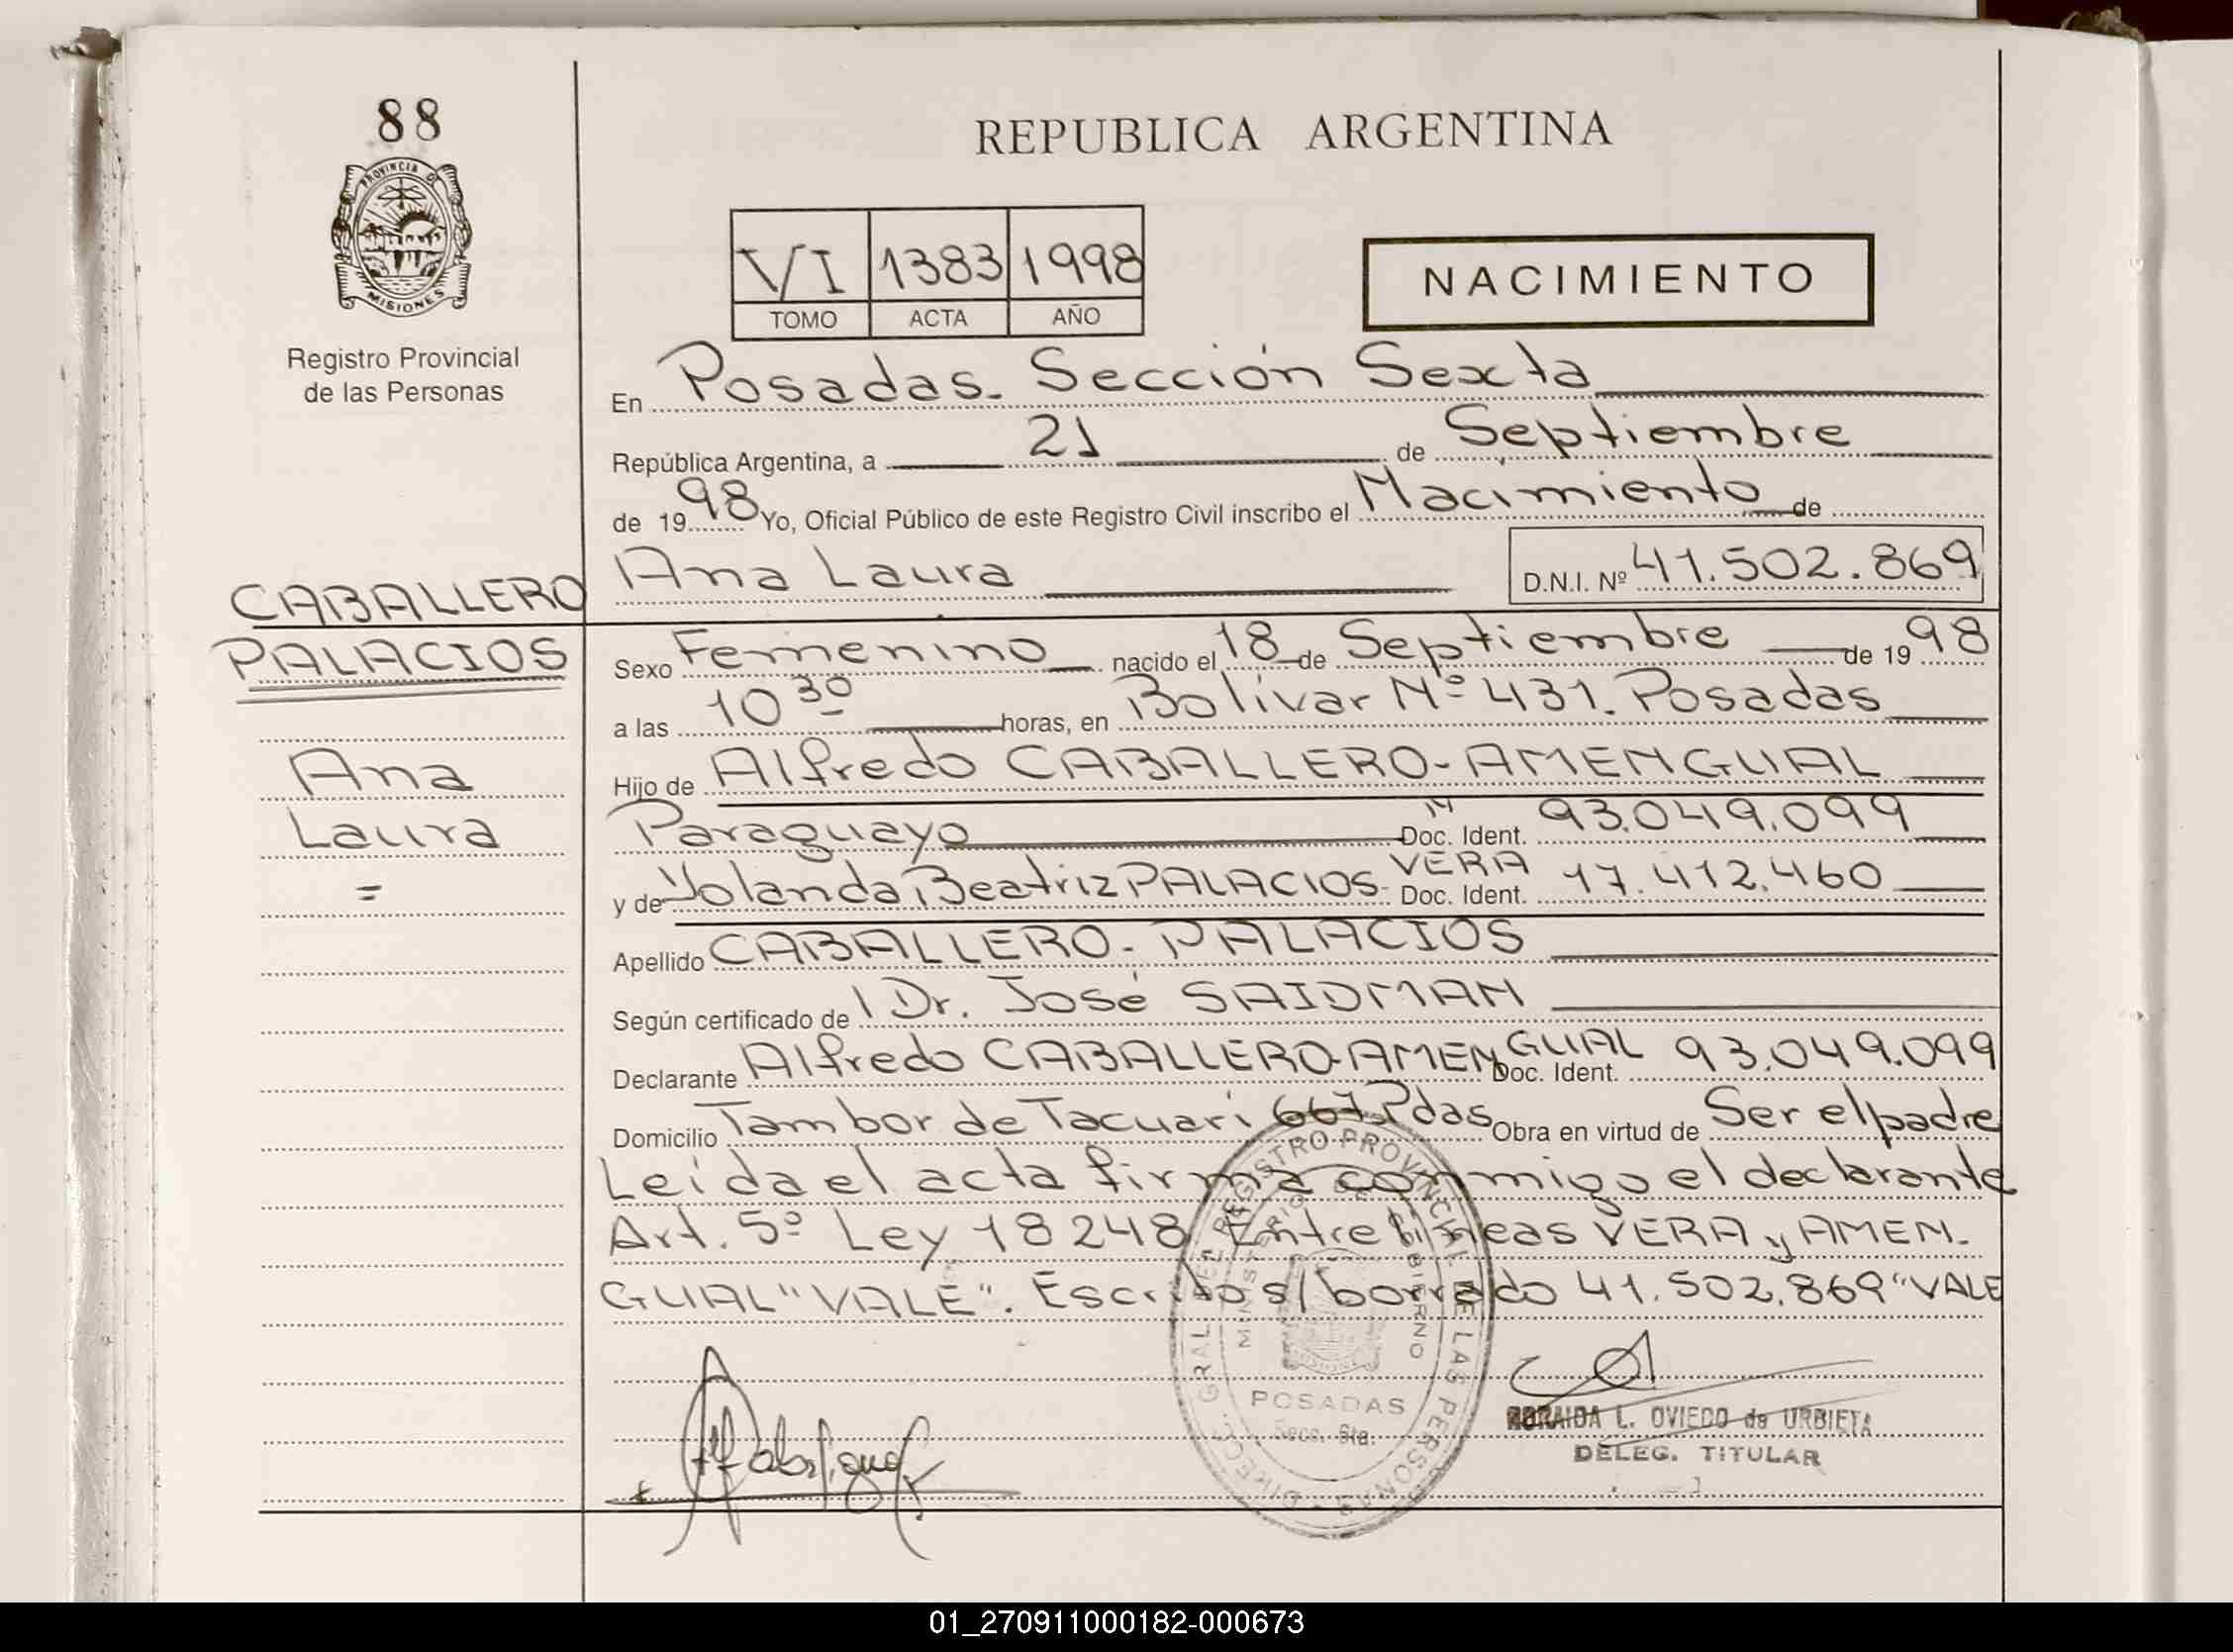 88
PROVINCIA D
MISIONES
Registro Provincial
de las Personas
REPUBLICA ARGENTINA
VI 1383 1998
TOMO ACTA AÑO
NACIMIENTO
En Posadas. Sección Sexta
República Argentina, a 21 de Septiembre
de 1998 Yo, Oficial Público de este Registro Civil inscribo el Nacimiento de
Ana Laura D.N.I. Nº 41.502.869
CABALLERO
PALACIOS
Ana
Laura
=
Sexo Femenino nacido el 18 de Septiembre de 1998
a las 10 30 horas, en Bolívar Nº 431. Posadas
Hijo de Alfredo CABALLERO-AMENGUAL
Paraguayo Doc. Ident. 93.049.099
y de Yolanda Beatriz PALACIOS- VERA Doc. Ident. 17.412.460
Apellido CABALLERO-PALACIOS
Según certificado de Dr. José SAIDMAN
Declarante Alfredo CABALLERO-AMENGUAL Doc. Ident. 93.049.099
Domicilio Tambor de Tacuarí 667 Pdas Obra en virtud de Ser el padre
Leída el acta firma conmigo el declarante
Art. 5º Ley 18248 Entre líneas VERA y AMEN-
GUAL "VALE". Escrito s/borrado 41.502.869 "VALE
DIREC. GRAL. DEL REGISTRO PROVINCIAL DE LAS PERSONAS
MINISTERIO DE GOBIERNO
POSADAS
Secc. 6ta.
ZORAIDA L. OVIEDO de URBIETA
DELEG. TITULAR
01_270911000182-000673